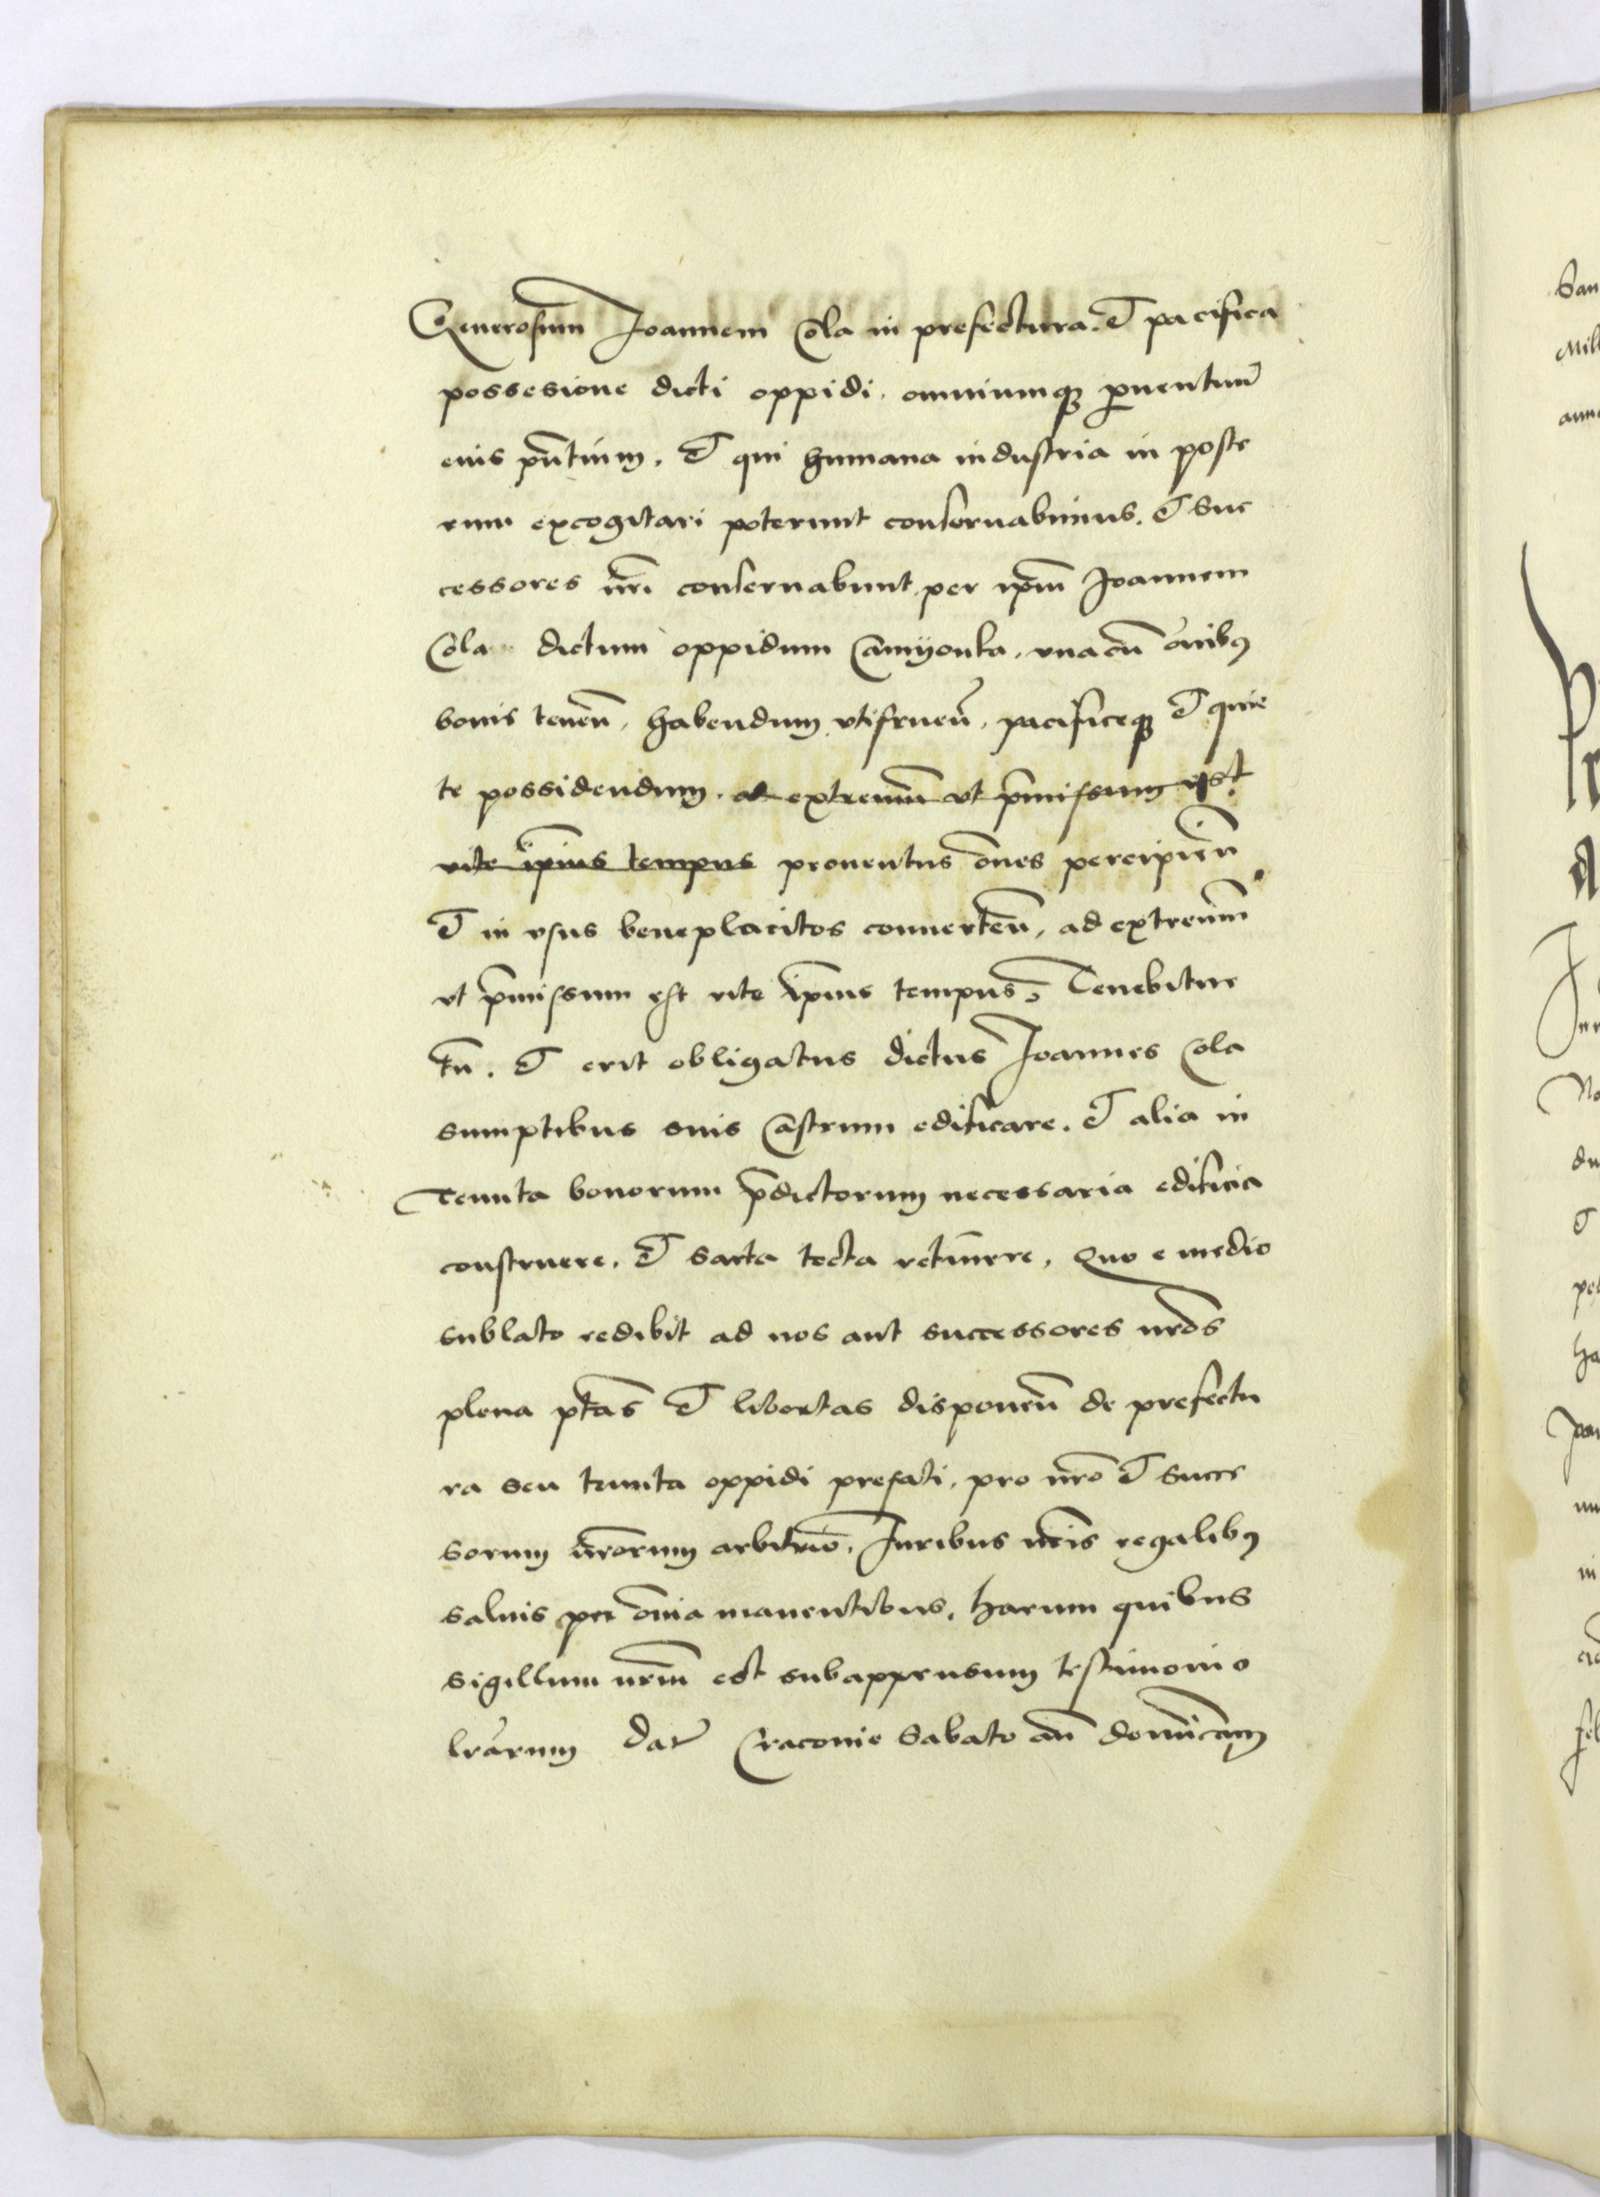 Generosum Joannem Cola in prefectura. Et pacifica
possesione dicti oppidi. omniumque prouentuum
eius pntium. Et qui humana industria in poste
rum excogitari poterunt conseruabimus. Et suc
cessores nri conseruabunt per ipm Joannem
Cola dictum oppidum Camyonka. vnacu oibus
bonis tenen. habendum vtifruen. pacificeque Et quie
te possidendum. ad extremum vt pmissum est
vite ipius tempus prouentus ones percipien
Et in vsus beneplacitos conuerten, ad extremum
vt pmissum est vite ipius tempus. Tenebitur
tn. Et erit obligatus dictus Joannes Cola
sumptibus suis Castrum edificare. Et alia in
Tenuta bonorum pdictorum necessaria edificia
construere. Et sarta tecta retinere. Quo e medio
sublato redibit ad nos aut successores nros
plena ptas Et libertas disponen de prefectu
ra seu tenuta oppidi prefati. pro nro Et succes
sorum nrorum arbitrio. Juribus nris regalibus
saluis per omia manentibus. harum quibus
sigillum nrm est subappensum testimonio
lrarum Dat Cracouie Sabato an dominicam